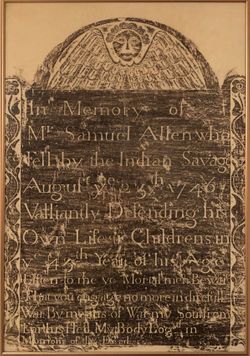 In Memory of
Mr Samuel Allen who
Fell by the Indian Savag
August ye 25th 1746
Valliantly Defending his
Own Life & Childrens in
ye 45th Year of his Age
Listen to me ye Mortal men Bewar
That you engage no more in direful
War By means of War my Soul from
Earth is fled My Body Lodg'd in
Mansions of the Dead